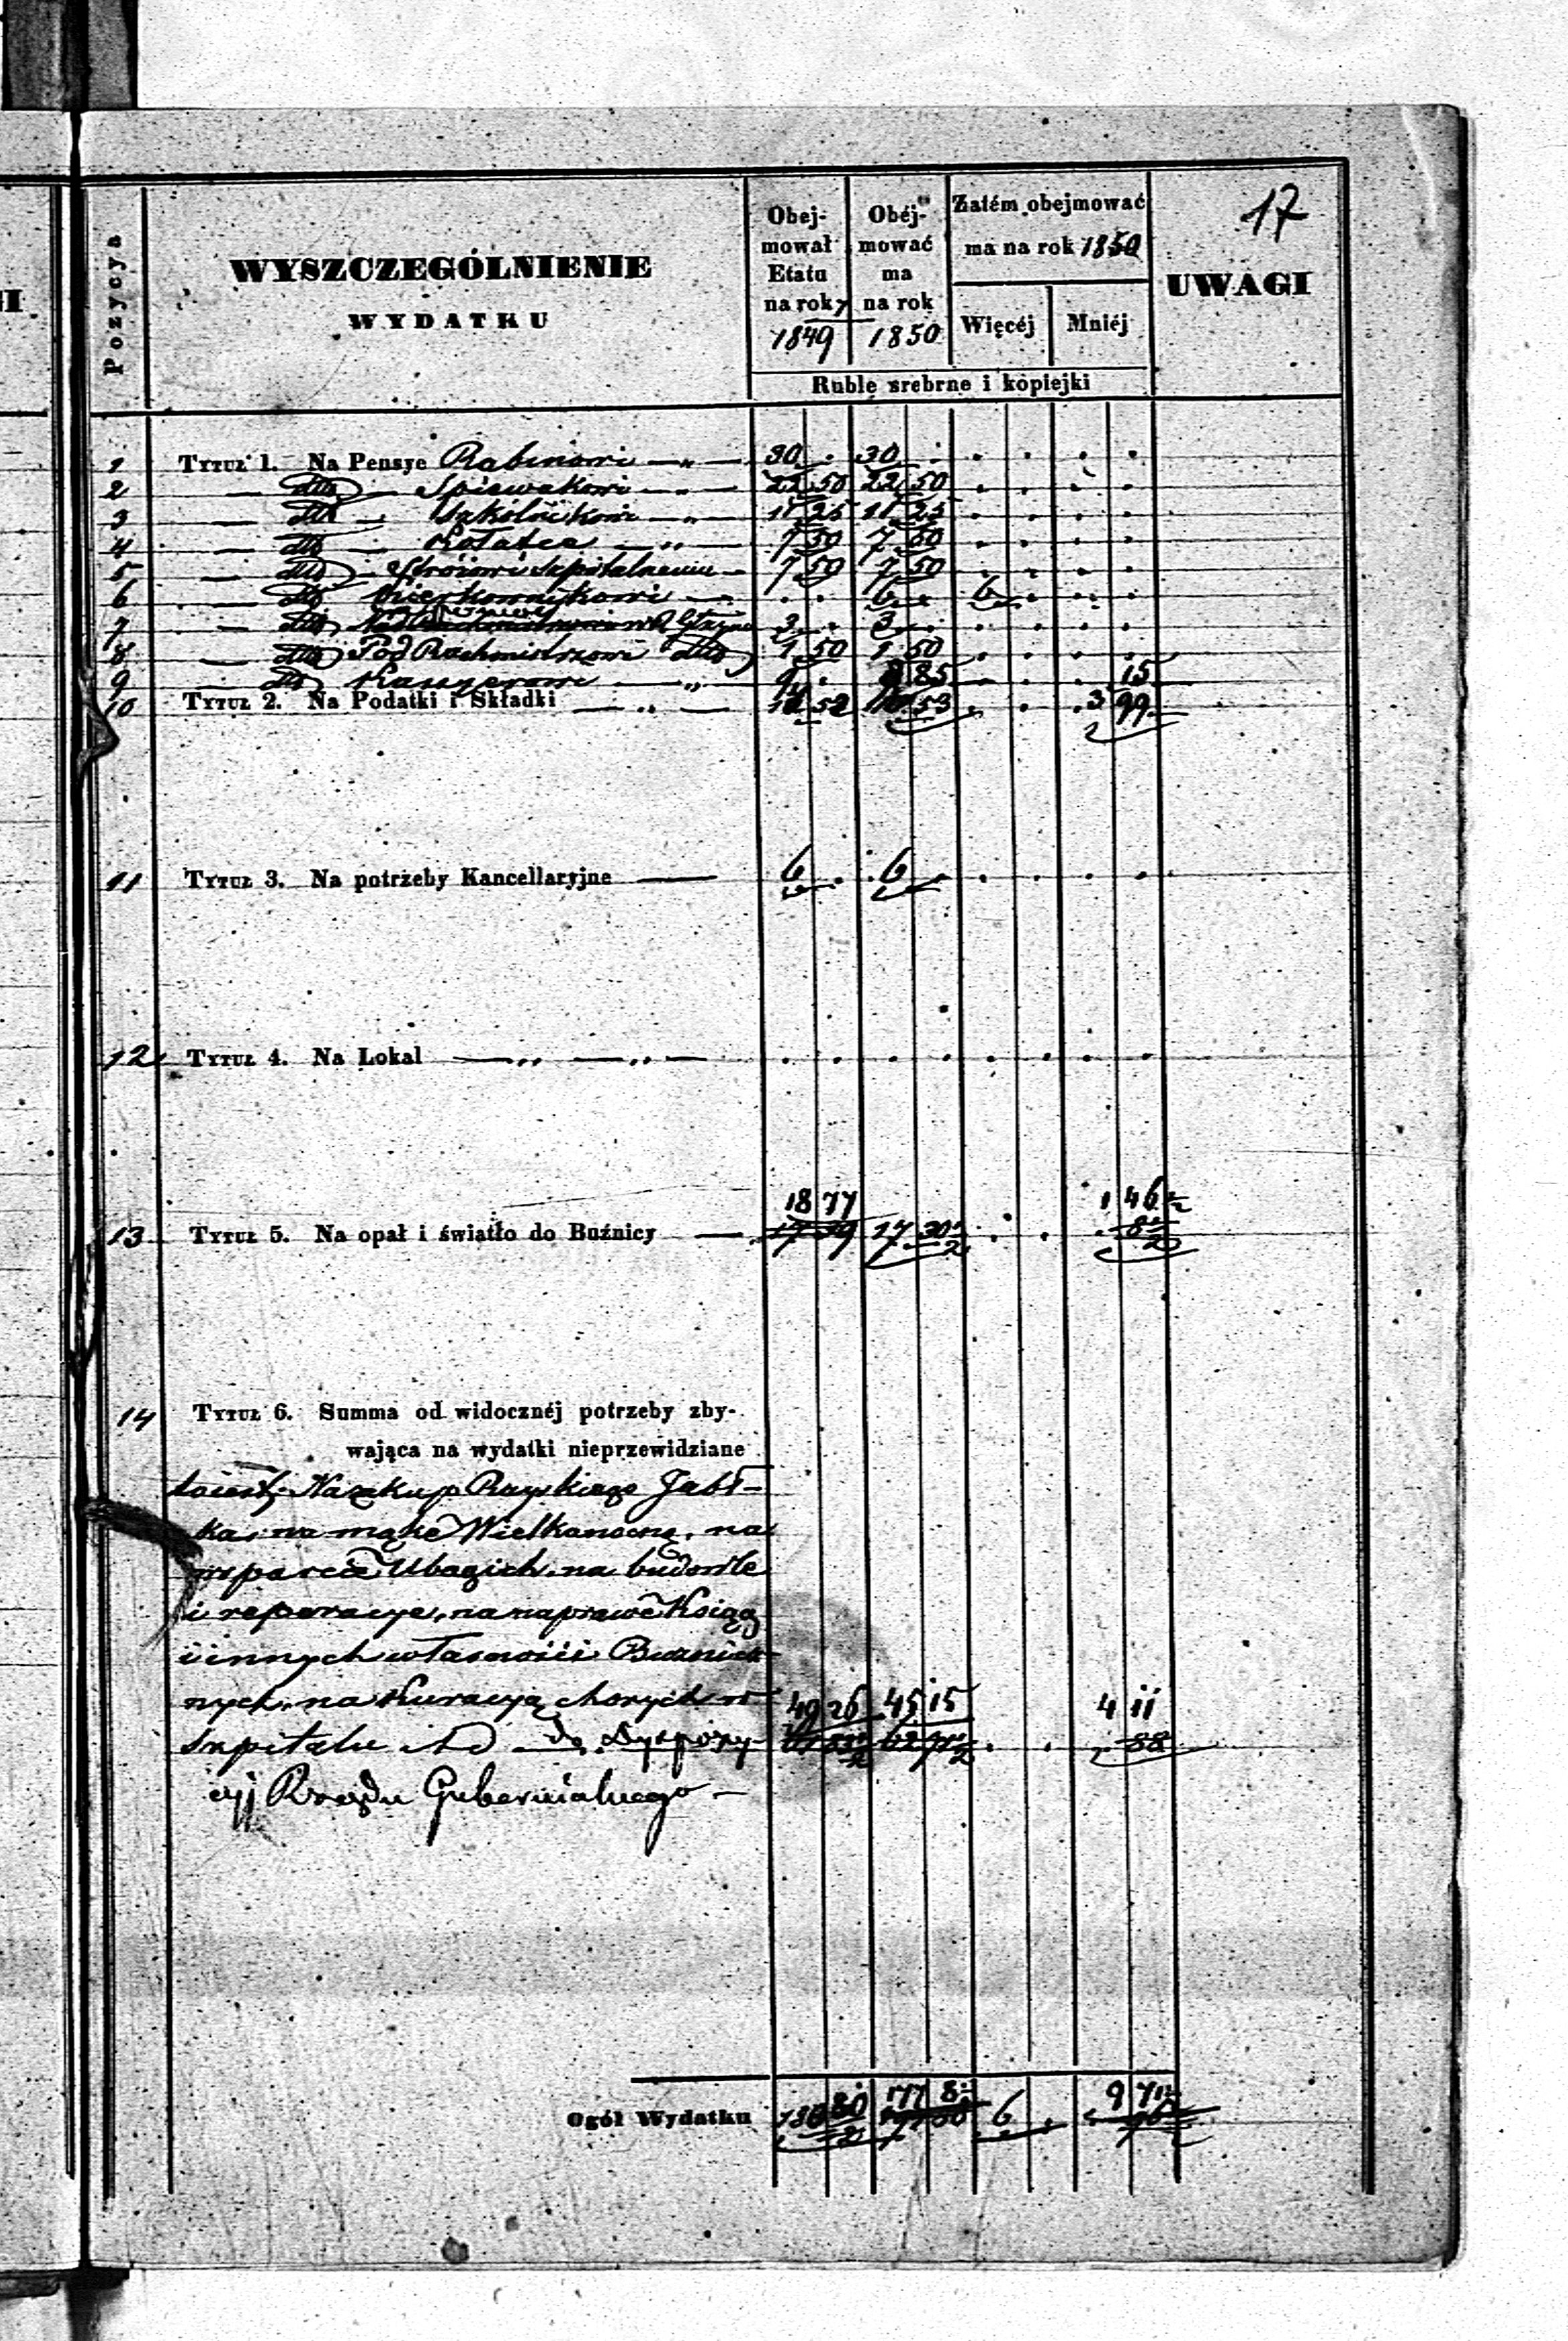 17
Pozycya
WYSZCZEGÓLNIENIE
WYDATKU
Obej-
mował
Etatu
na rok
1849
Obéj-
mować
ma
na rok
1850
Zatém obejmować
ma na rok 1850
Więcéj
Mniéj
UWAGI
Ruble srebrne i kopiejki
1 Tytuł 1. Na Pensye Rabinowi 30 . 30 .
2 dtto Spiewakowi 22 50 22 50
3 dtto Szkólnikowi 11 25 11 25
4 dtto 7 50 7 50
5 dtto Stróżowi Szpitalnemu 7 50 7 50
6 dtto . . 6 . 6 .
7 dtto 3 . 3 .
8 dtto Pod Rachmistrzowi dtto 1 50 1 50
9 dtto Kassyerowi 9 . 8 85 15
10 Tytuł 2. Na Podatki i Składki 52 53 3 99
11 Tytuł 3. Na potrzeby Kancellaryjne 6 . 6 .
12 Tytuł 4. Na Lokal
18 77 1 46½
13 Tytuł 5. Na opał i światło do Buźnicy 17 39 17 30½ 8½
14 Tytuł 6. Summa od widocznéj potrzeby zby-
wająca na wydatki nieprzewidziane
toiest: Na zakup Rayskiego Jabł-
ka, na mąkę Wielkanocną, na
wsparcie Ubogich, na budowle
i reperacye, na naprawę Ksiąg
i innych własności Buznicz-
nych, na Kuracyą chorych w 49 26 45 15 4 11
Szpitalu itd do Dyspozy- 88
cyj Rządu Gubernialnego
177 8½ 9 71½
Ogół Wydatku 6 .